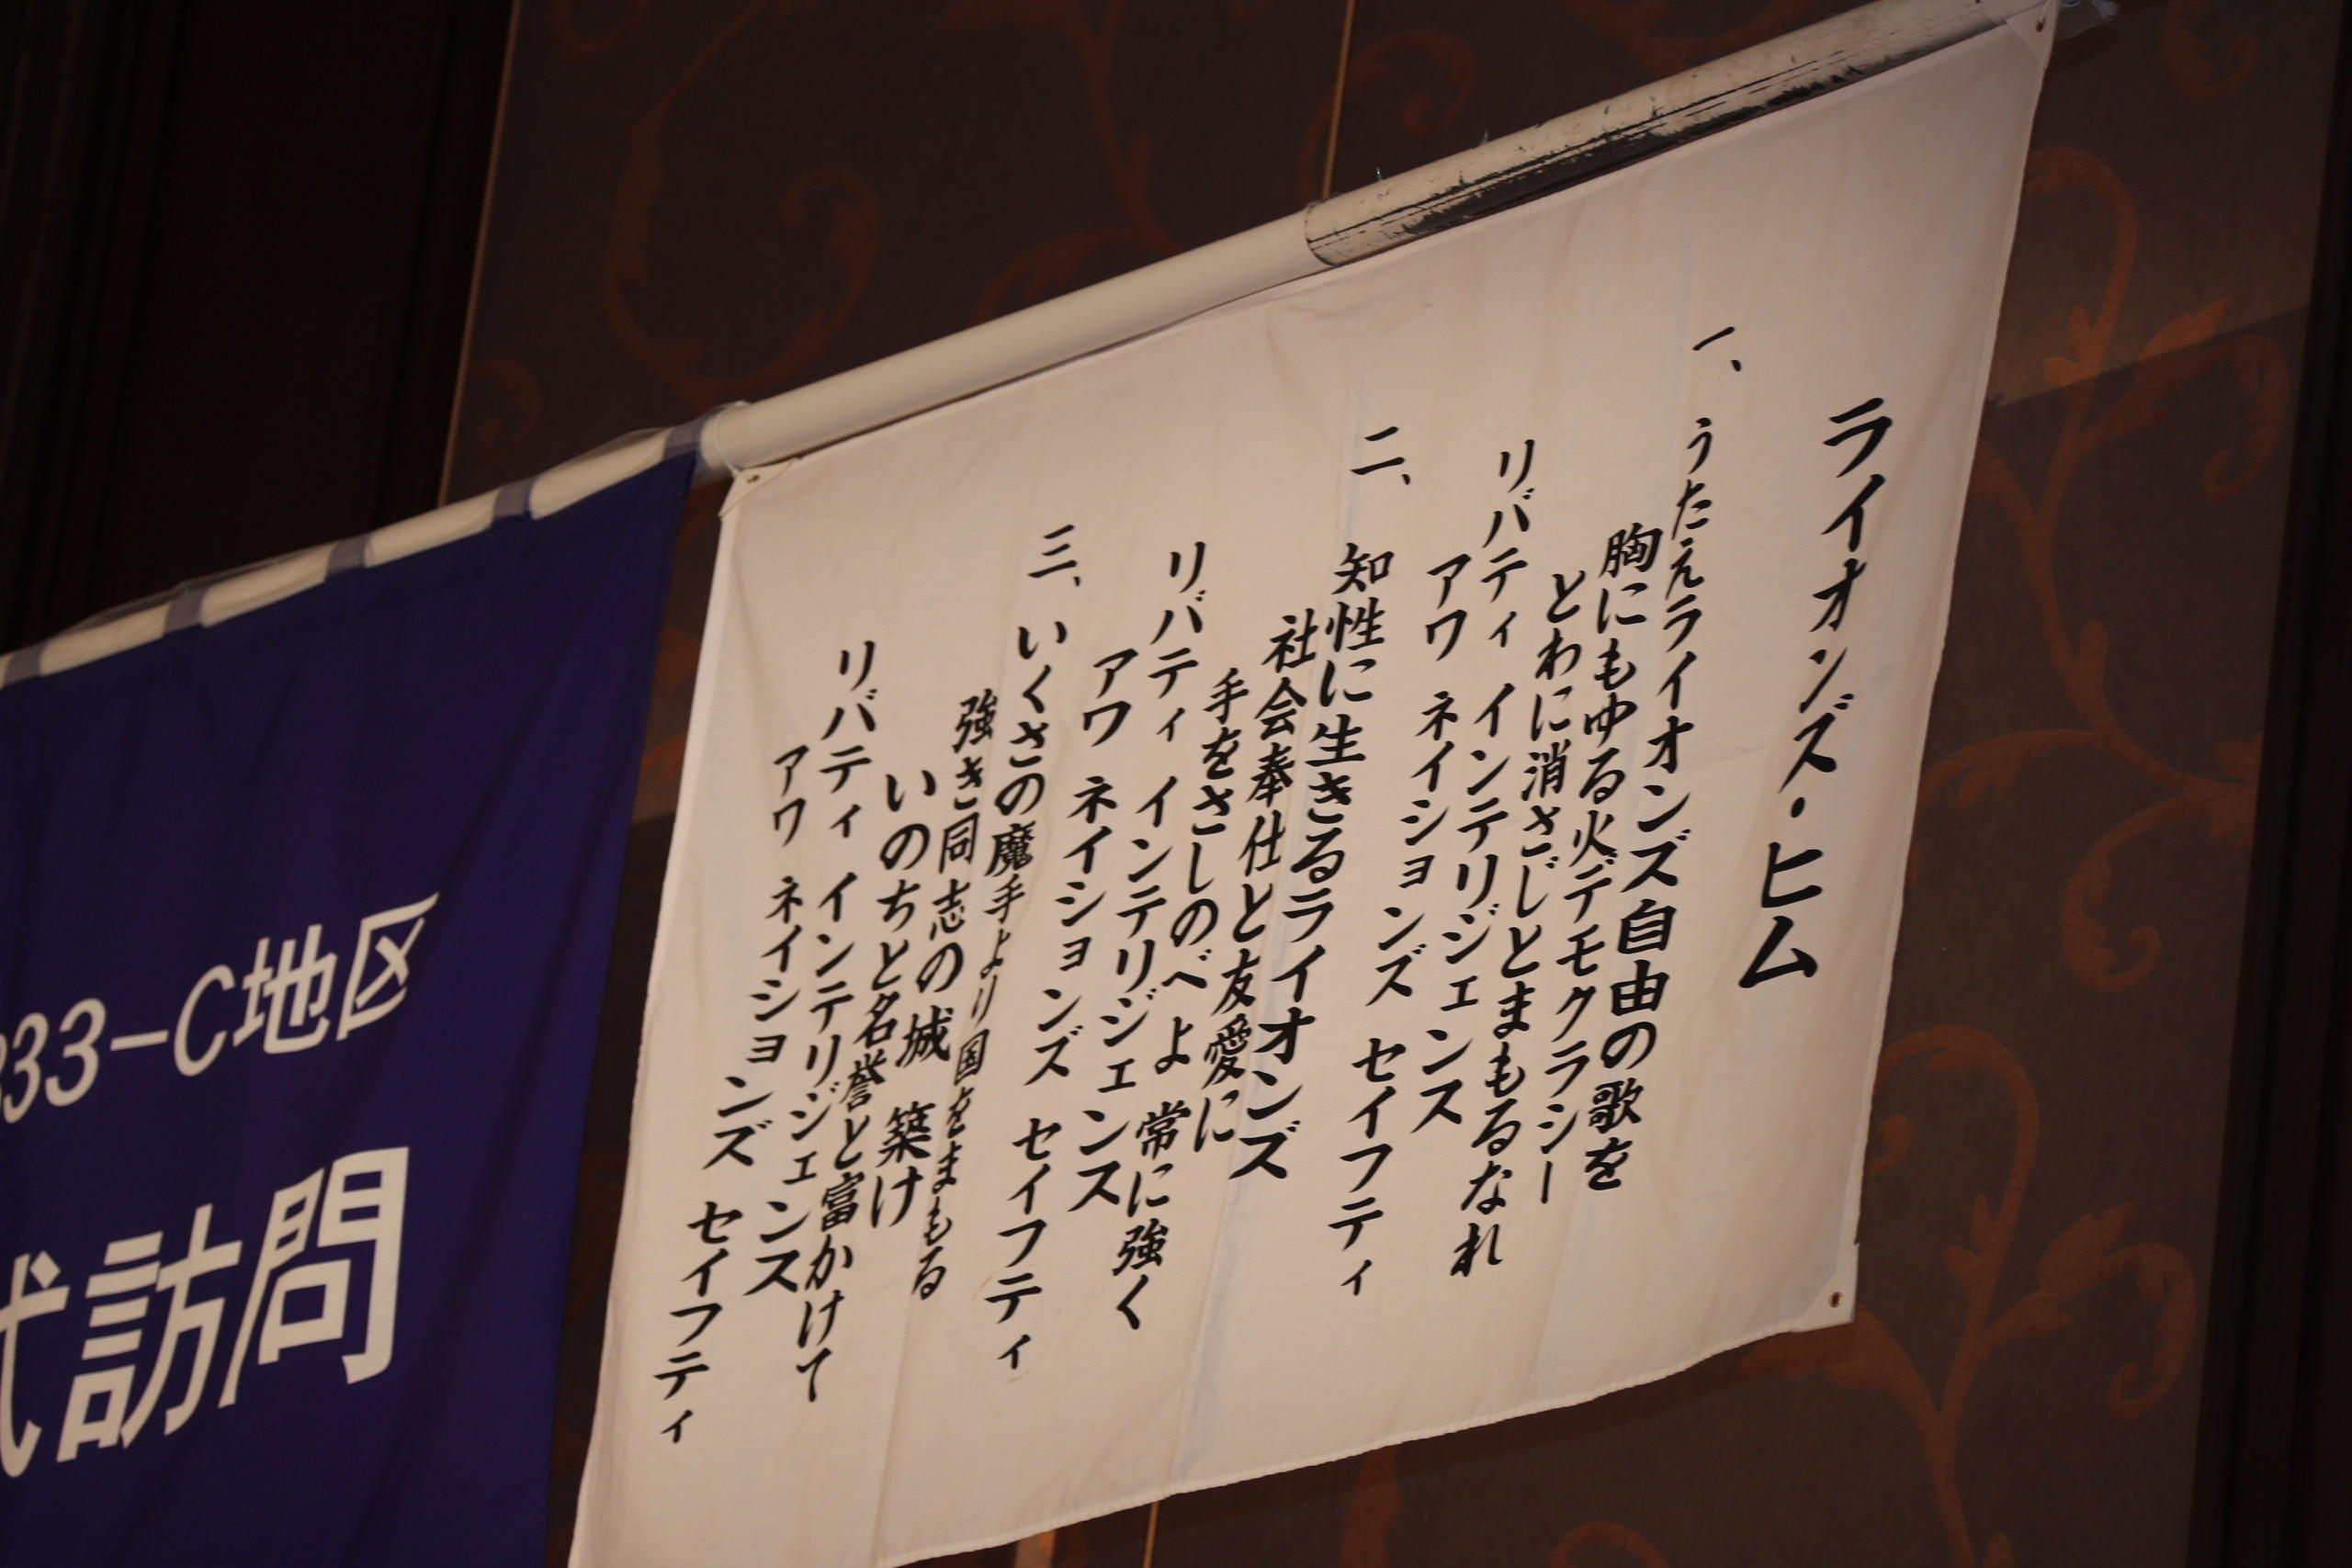 ライオンズ・ヒム
一、うたえライオンズ自由の歌を
胸にもゆる火デモクラシー
とわに消さじとまもるなれ
リバティ インテリジェンス
アワ ネイションズ セイフティ
二、知性に生きるライオンズ
社会奉仕と友愛に
手をさしのべよ 常に強く
リバティ インテリジェンス
アワ ネイションズ セイフティ
三、いくさの魔手より国をまもる
強き同志の城 築け
いのちと名誉と富かけて
リバティ インテリジェンス
アワ ネイションズ セイフティ
333-C地区
式訪問